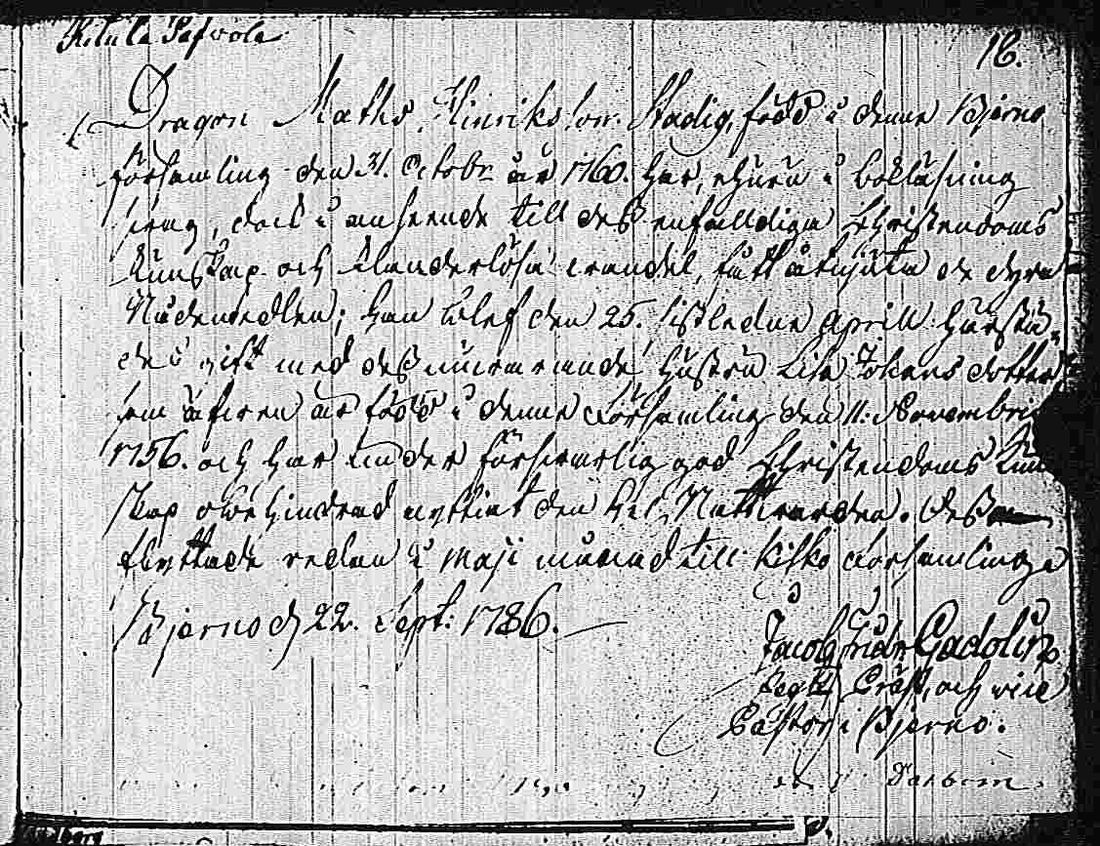 Kilula Pafvola
18.
Dragon Maths Hinriksson Stadig, född i denne Bjerno
församling den 31. Octobr. år 1760. har, ehuru i bokläsning
swag, dock i anseende till deß enfalldiga Christendoms
Kunskap och klanderlösa wandel, fått åtniuta de dyra
Nådemedlen; han blef den 25. sistledne Aprill härstä-
des gift med deß nuvarande hustru Lisa dotter
som äfven är född i denne Församling den 11. Novembris
1756. och har under försvarlig god Christendoms Kun
skap obehindrad nyttiat den hel. Nattwarden. Deße
flyttade redan i Maji månad till Kisko Församling
Bjerno d 22. Sept: 1786.
Jacob Fridr Gadolin
Regts Präst, och vice
Pastor i Bjerno.